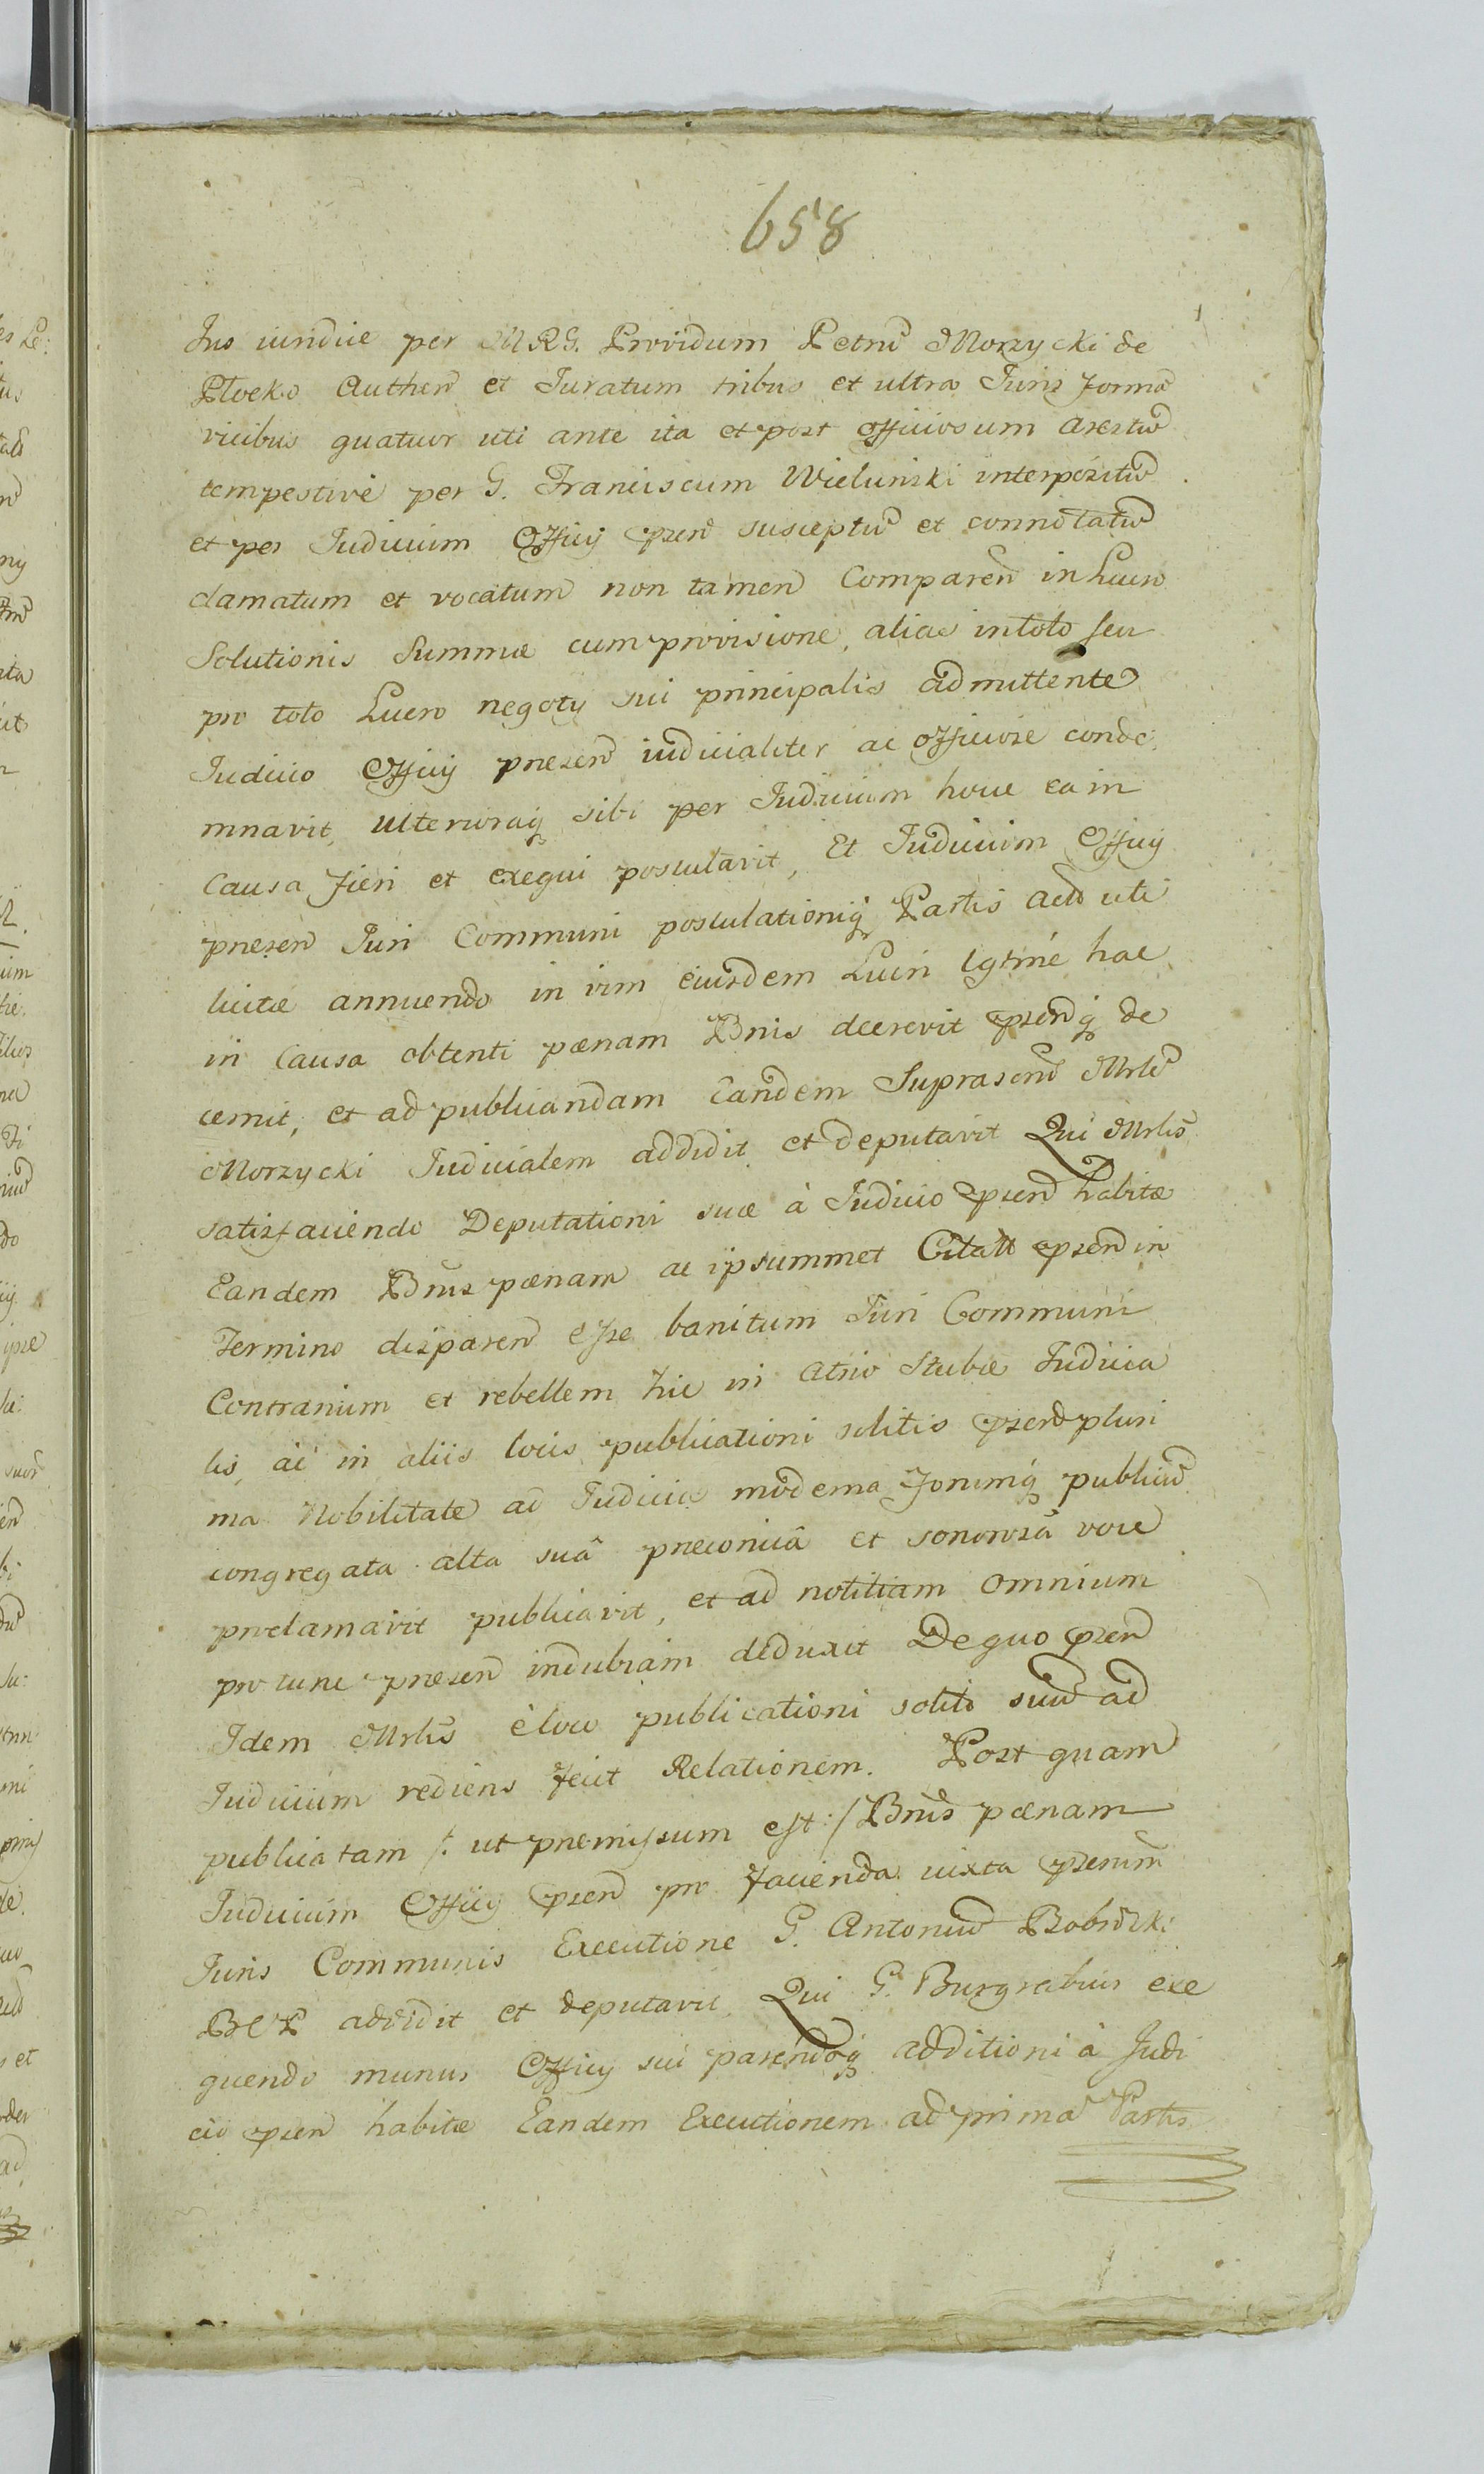 658
Jus iuridice per MRG. Providum Petrũ Morzycki de
Plocko Authen̄ et Juratum tribus et ultra Juris forma
vicibus quatuor uti ante ita et post officiosum arestũ
tempestive per G. Franciscum Wieluński interpositũ
et per Judicium Officij pn̄ susceptũ et connotatũ
clamatum et vocatum non tamen Comparen̄ in Lucro
Solutionis Summæ cum provisione, alias in toto seu
pro toto Lucro negotij sui principalis admittente
Judicio Officij præsen̄ iudicialiter ac officiose conde:
mnavit, ulterioraq̨ sibi per Judicium hocce ea in
Causa fieri et exequi postulavit, Et Judicium Officij
præsen̄ Juri Communi postulationiq̨ Partis Act̄ uti
licitæ annuendo in vim eiusdem Lucri lgtme hac
in Causa obtenti pœnam Bn̄is decrevit præsen̄q̨ de
cernit, et ad publicandam Eandem Suprascrip̄ Mrlẽ
Morzycki Judicialem addidit et deputavit Qui Mrlis̃
satisfaciendo Deputationi suæ à Judicio præsen̄ habitæ
Eandem Bn̄is pœnam ac ipsummet Citatt̄ præsen̄ in
Termino disparen̄ esse banitum Juri Communi
Contrarium et rebellem hic in Atrio Stubæ Judicia
lis, ac in aliis locis publicationi solitis præsen̄ pluri
ma Nobilitate ad Judicia moderna Forumq̨ publicũ
congregata alta suâ preconicâ et sonorosâ voce
proclamavit publicavit, et ad notitiam omnium
pro tunc præsen̄ indubiam deduxit De quo præsen̄
Idem Mrlis̃ è loco publicationi solito suũ ad
Judicium rediens fecit Relationem. Post quam
publicatam /: ut præmissum est :/ Bn̄is pœnam
Judicium Officij præsen̄ pro facienda iuxta præscrip̄
Juris Communis Executione G. Antoniũ Bobrõski
BCP addidit et deputavit. Qui G. Burgrabius exe
quendo munus Officij sui parendoq̨ additioni à Judi
cio præsen̄ habitæ Eandem Executionem ad prima Partis